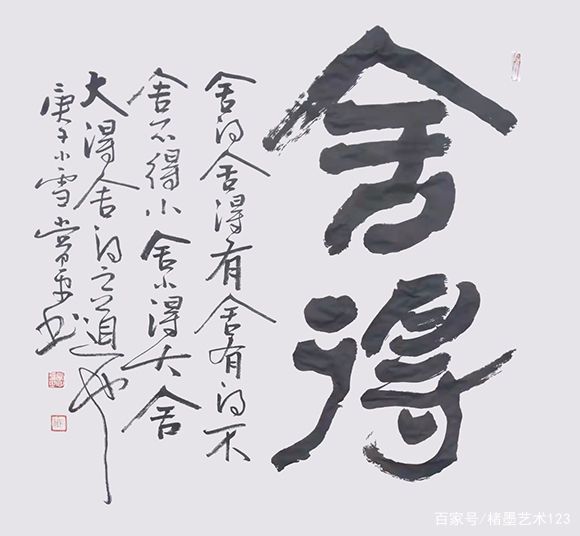 舍得
舍得舍得有舍有得不
舍不得小舍小得大舍
大得舍得之道也
庚子小雪常平书
百家号/楮墨艺术123